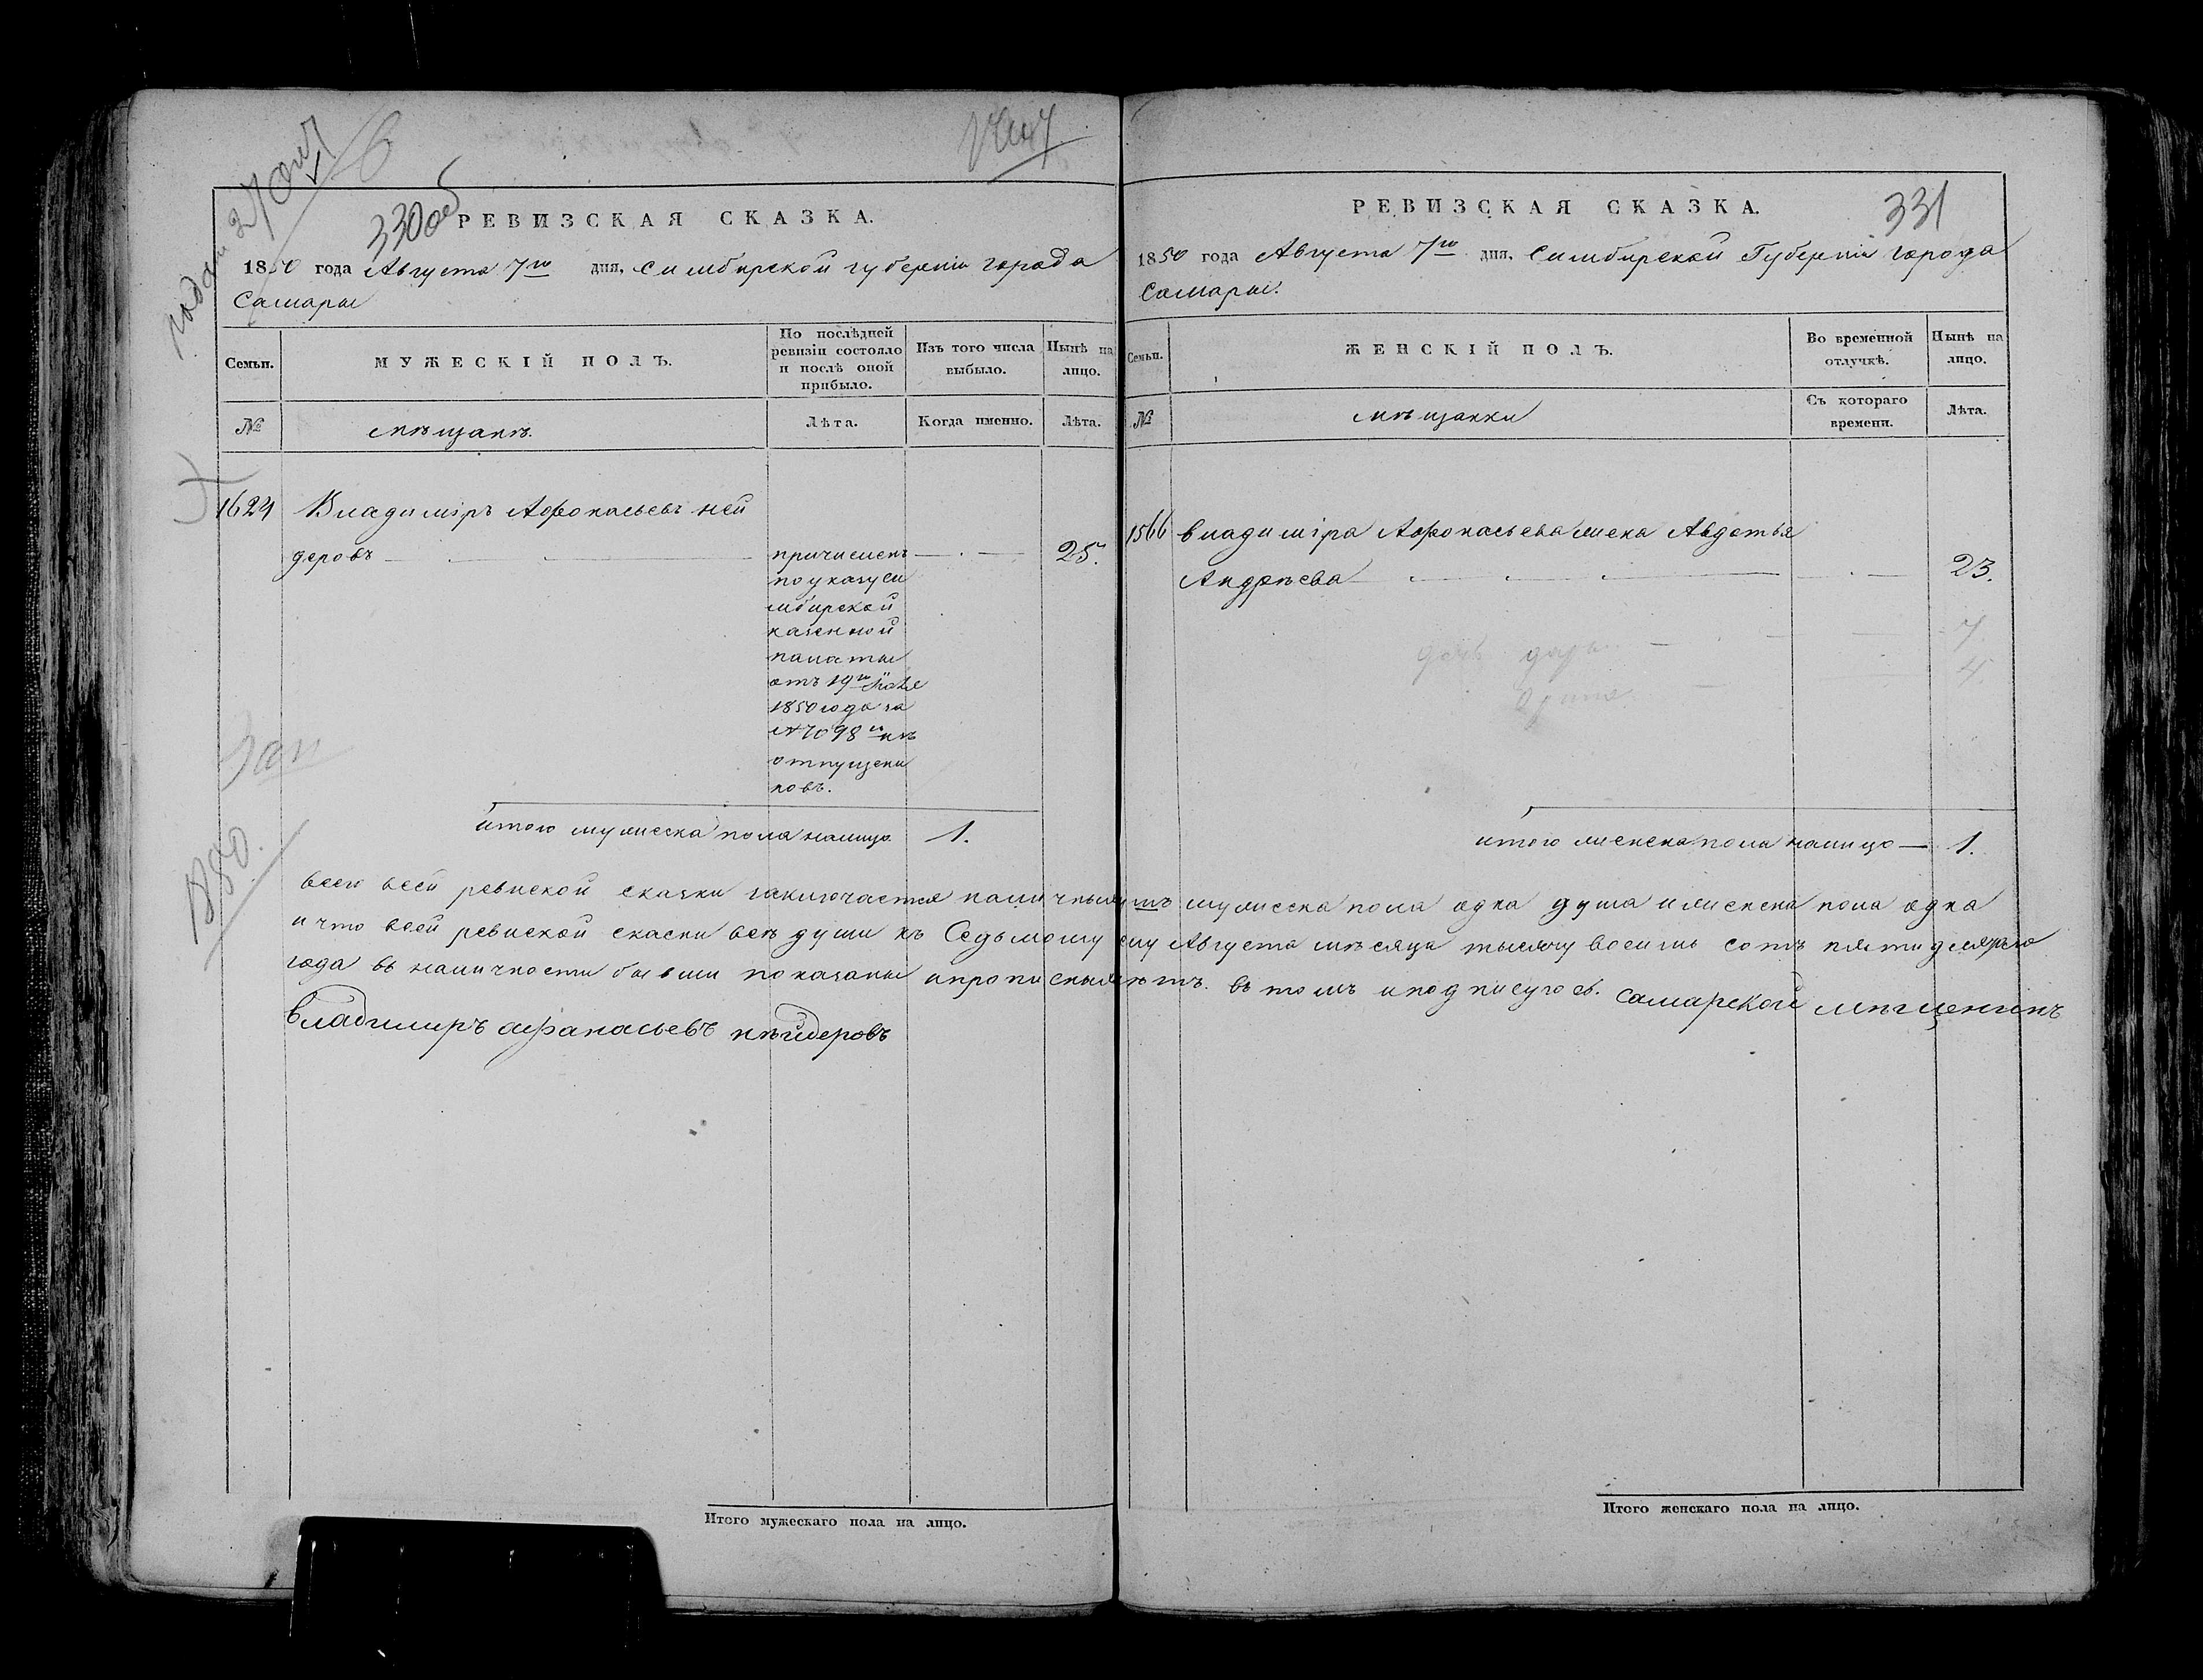 330 об
РЕВИЗСКАЯ СКАЗКА.
1850 года Августа 7го дня, Симбирской губерніи города
Самары
Семьи.
МУЖЕСКІЙ ПОЛЪ.
По послѣдней ревизіи состояло и послѣ оной прибыло.
Изъ того числа выбыло.
Нынѣ на лицо.
№
мѣщанъ.
Лѣта.
Когда именно.
Лѣта.
1624 Владиміръ Афонасьевъ ней
деровъ причисленъ 25.
по указу си
мбирской
казенной
палаты
отъ 19го
1850 года за
№ 7098 изъ
отпущени
ковъ.
итого мужеска пола налицо 1.
1850.
331
РЕВИЗСКАЯ СКАЗКА.
1850 года Августа 7го дня, Симбирской Губерніи города
Самары.
Семьи.
ЖЕНСКІЙ ПОЛЪ.
Во временной отлучкѣ.
Нынѣ на лицо.
№
мѣщанки
Съ котораго времени.
Лѣта.
1566 Владиміра Афонасьева жена Авдотья
Андрѣева 23.
дочь
7
4.
итого женска пола налицо — 1.
всего всей ревиской сказки заключается мужеска пола одна душа и женска пола одна
и что всей ревиской скаски всѣ души къ Седьмому Августа мѣсяца тысячу восемь сотъ
года въ наличности бывши показаны въ томъ и подписуюсь. самарской мѣщенинъ
владимиръ афанасьевъ нѣйдеровъ
Итого мужескаго пола на лицо.
Итого женскаго пола на лицо.